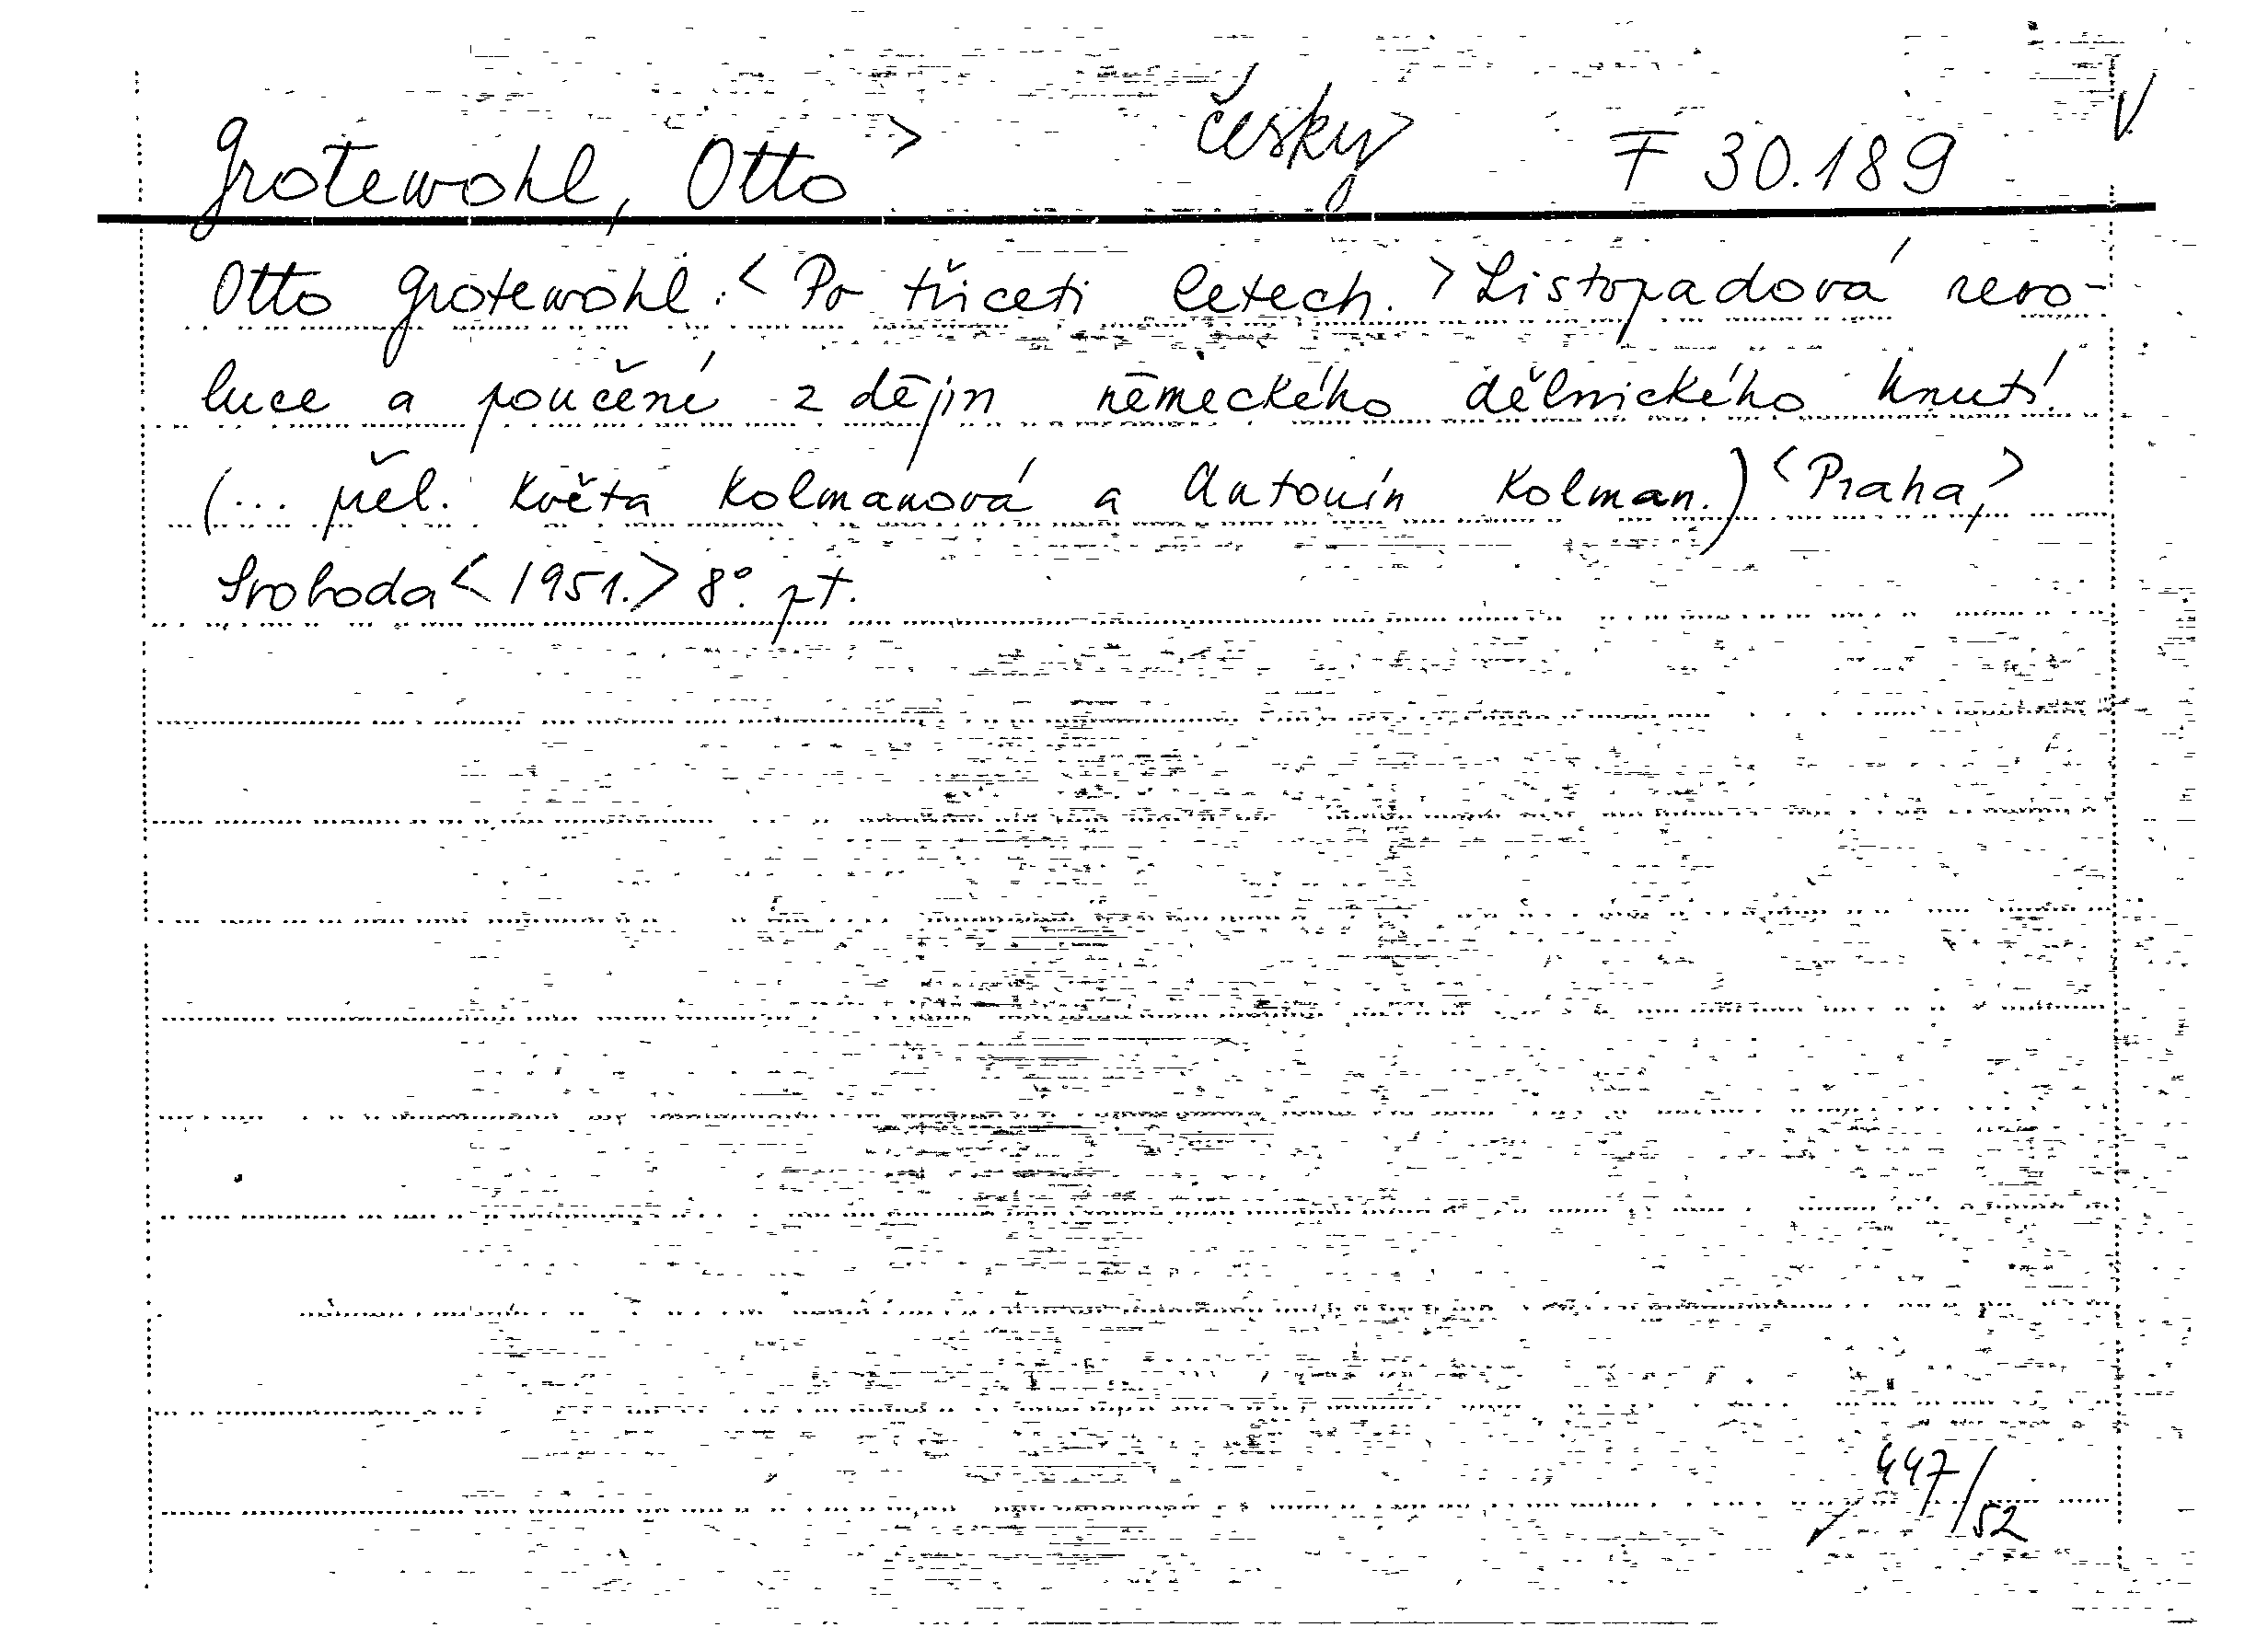 Grotewohl, Otto > česky F 30.189 V
Otto Grotewohl: <Po třiceti letech.> Listopadová revo-
luce a poučení z dějin německého dělnického hnutí.
(... přel. Květa Kolmanová a Antonín Kolman.) <Praha,>
Svoboda <1951.> 8°. pt.
447/52